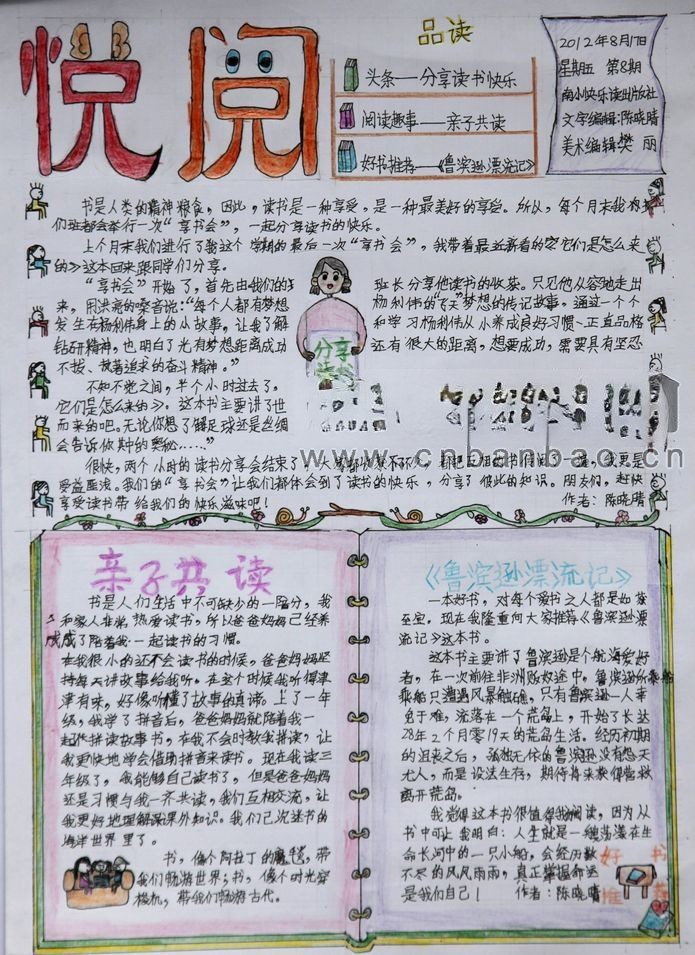 悦阅
品读
头条——分享读书快乐
阅读趣事——亲子共读
好书推荐——《鲁滨逊漂流记》
2012年8月17日
星期五 第8期
南小快乐读出版社
文字编辑:陈晓晴
美术编辑樊 丽
书是人类的精神粮食,因此,读书是一种享受,是一种最美好的享受。所以,每个月末我
们班都会举行一次“享书会”,一起分享读书的快乐。
上个月末我们进行了我这个学期的最后一次“享书会”,我带着最近新看的《它们是怎么来
的》这本回来跟同学们分享。
“享书会”开始了,首先由我们的 班长分享他读书的收获。只见他从容地走出
来,用洪亮的嗓音说:“每个人都有梦想 杨利伟的“飞天”梦想的传记故事,通过一个个
发生在杨利伟身上的小故事,让我了解 和学习杨利伟从小养成良好习惯、正直品格
钻研精神,也明白了光有梦想距离成功 还有很大的距离,想要成功,需要具有坚忍
不拔、执著追求的奋斗精神。”
分享
不知不觉之间,半个小时过去了。
它们是怎么来的》。这本书主要讲了世
而来的吧。无论你想了解足球还是丝绸
会告诉你其中的奥秘……”
很快,两个小时的读书分享会结束了,
www.cnbanbao.cn
受益匪浅。我们的“享书会”让我们都体会到了读书的快乐,分享了彼此的知识。朋友们,赶快
享受读书带给我们的快乐滋味吧! 作者:陈晓晴
亲子共读
书是人们生活中不可缺少的一部分,我
和家人非常热爱读书,所以爸爸妈妈已经养
成了陪着我一起读书的习惯。
在我很小的还不会读书的时候,爸爸妈妈坚
持每天讲故事给我听。在这个时候我听得津
津有味,好像听懂了故事的真谛。上了一年
级,我学了拼音后,爸爸妈妈就陪着我一
起化拼读故事书,在我不会时教我拼读,让
我更快地学会借助拼音来读书。现在我读三
年级了,我能够自己读书了,但是爸爸妈妈
还是习惯与我一齐共读,我们互相交流,让
我更好地理解课外知识。我们已沉迷书的
海洋世界里了。
书,像个阿拉丁的魔毯,带
我们畅游世界;书,像个时光穿
梭机,带我们畅游古代。
《鲁滨逊漂流记》
一本好书,对每个爱书之人都是如获
至宝。现在我隆重向大家推荐《鲁滨逊漂
流记》这本书。
这本书主要讲了鲁滨逊是个航海爱好
者,在一次前往非洲贩奴途中。鲁滨逊所
乘船只遭遇风暴触礁,只有鲁滨逊一人幸
免于难,流落在一个荒岛上,开始了长达
28年2个月零19天的荒岛生活。经历初期
的沮丧之后,孤独无依的鲁滨逊没有怨天
尤人,而是设法生存,期待将来获得营救
离开荒岛。
我觉得这本书很值得我阅读,因为从
书中可让我明白:人生就是一艘荡漾在生
命长河中的一只小船,会经历数
不尽的风风雨雨,真正掌握命运
是我们自己! 作者:陈晓晴
好书
推荐